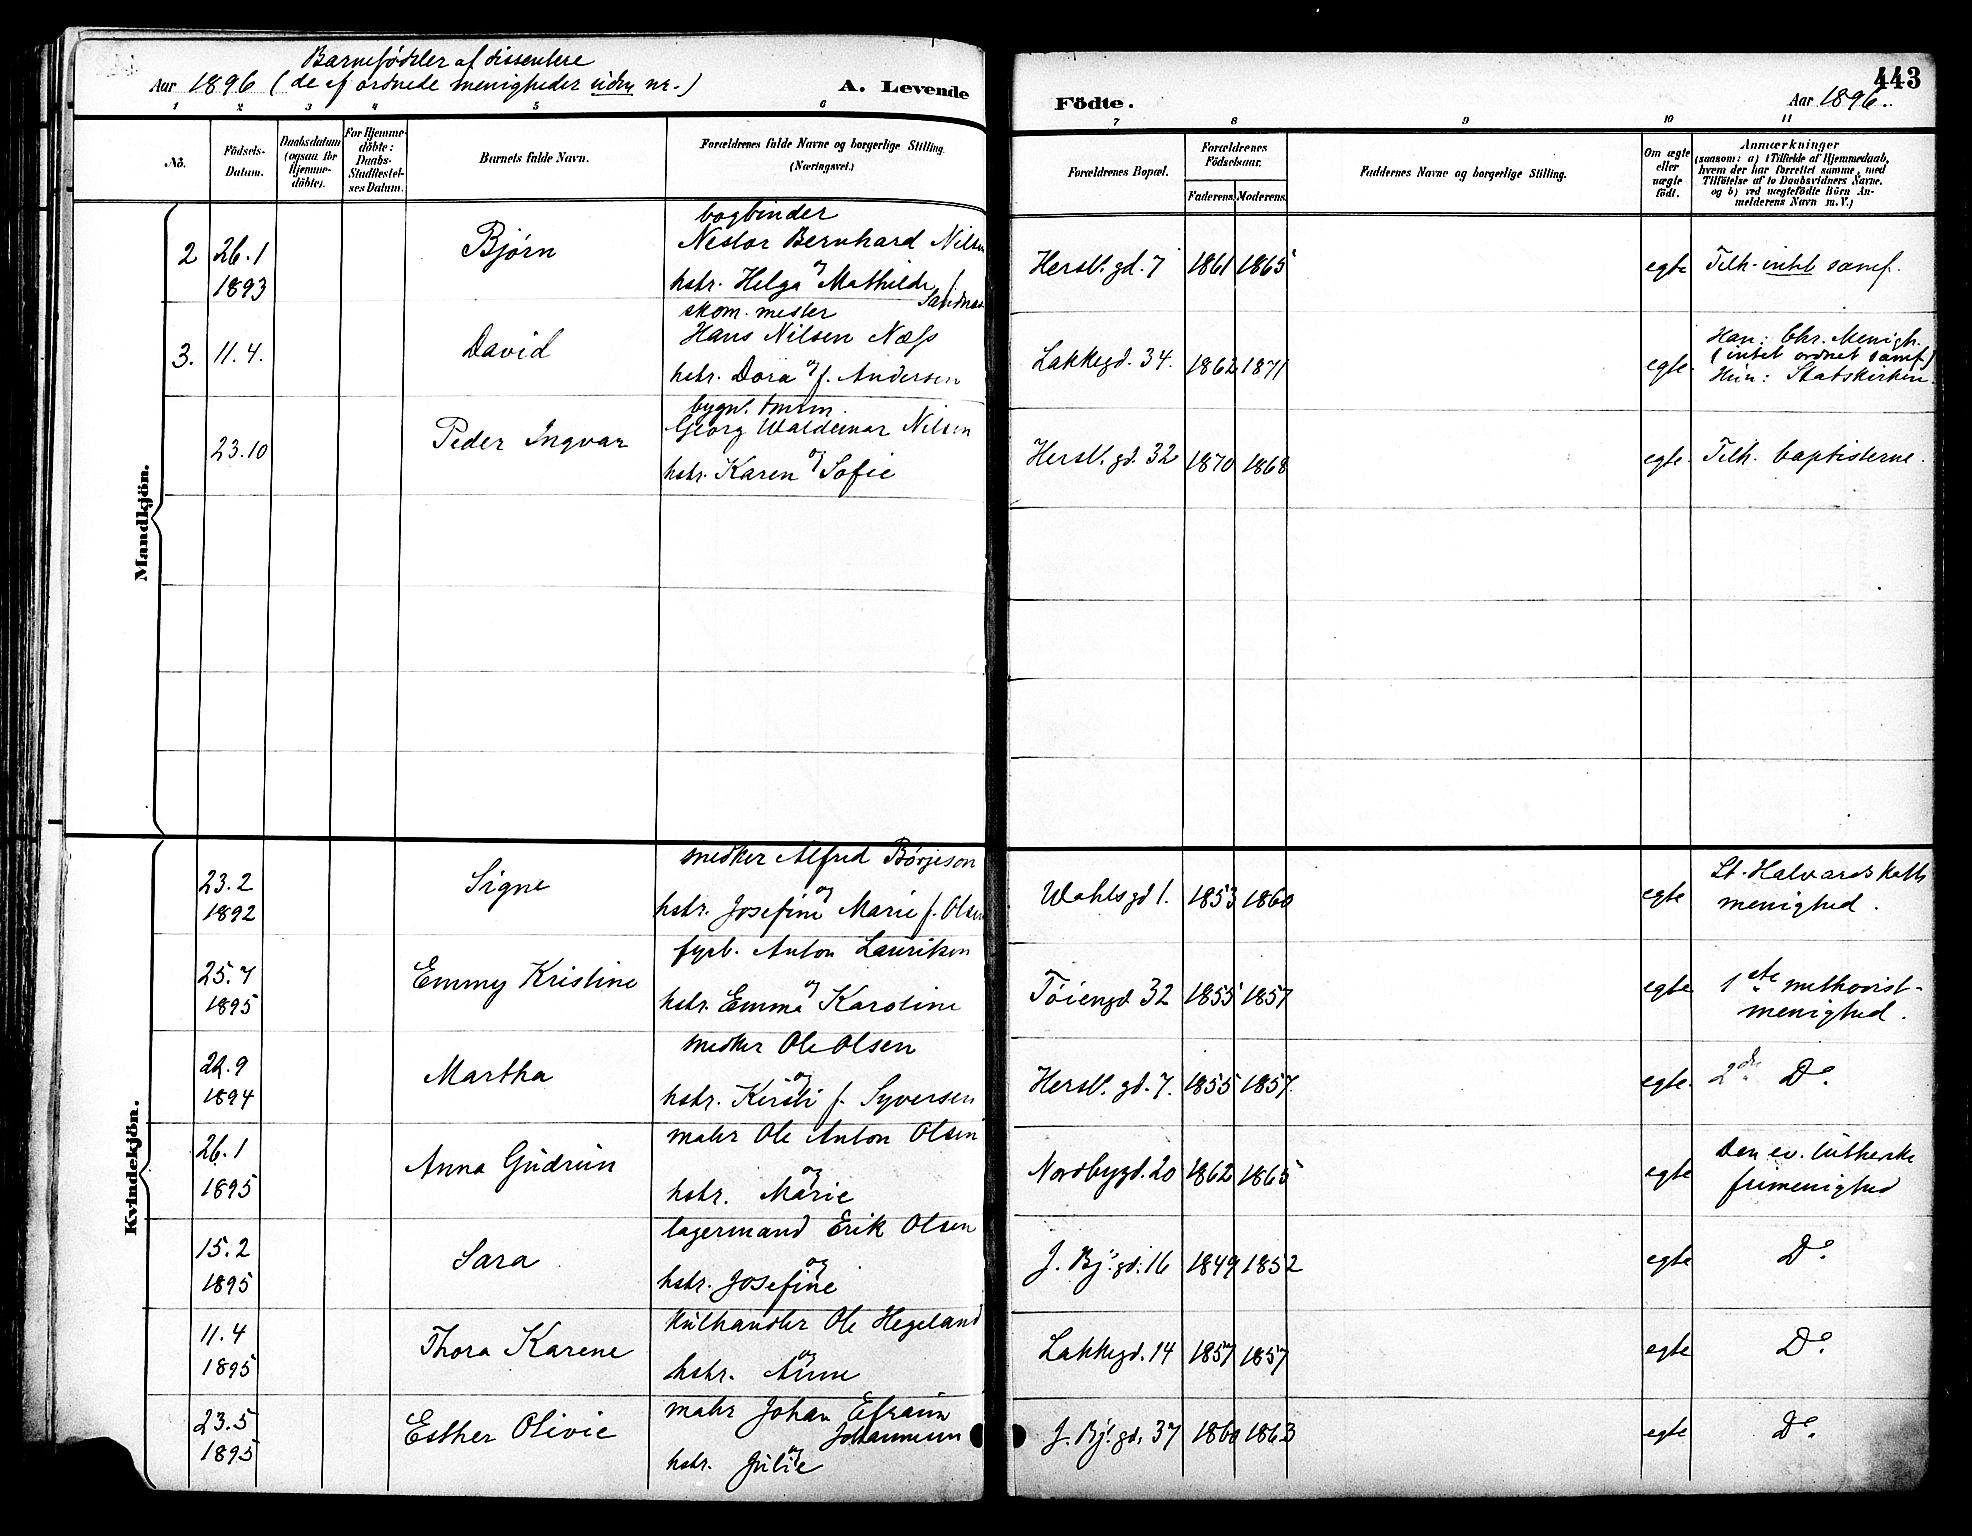 Barnefødsler af dissentere
Aar 1896 (de af ordnede menigheder uden nr.)
A. Levende
Födte.
443
Aar 1896.
1 2 3 4 5 6 7 8 9 10 11
No.
Födsels-
Datum.
Daabsdatum
(ogsaa for
Hjemme-
döbte).
For Hjemme-
döbte:
Daabs-
Stadfæstel-
ses Datum.
Barnets fulde Navn.
Forældrenes fulde Navne og borgerlige Stilling.
(Næringsvei.)
Forældrenes Bopæl.
Forældrenes
Födselsaar.
Faderens.
Moderens.
Faddernes Navne og borgerlige Stilling.
Om ægte
eller
uægte
födt.
Anmærkninger
(saasom: a) i Tilfælde af Hjemmedaab,
hvem der har forrettet samme, med
Tilföielse af to Daabsvidners Navne,
og b) ved uegtefödte Börn An-
melderens Navn m. V.)
Mandkjön.
bogbinder
2 26.1 Bjørn Nestor Bernhard Nilsen
1893 og
hstr. Helga Mathilde f.
Sandnæs
Hersl. gd. 7 1861 1865 egte Tilh. intet samf.
skom. mester
3. 11.4. David Hans Nilsen Næss
og
hstr. Dora f. Andersen
Lakkegd. 34. 1862 1871 egte.
Han: Chr. Menigh.
(intet ordnet samf)
Hun: Statskirken.
23.10 Peder Ingvar Georg Waldemar Nilsen
og
hstr. Karen Sofie
Hersl. gd. 32 1870 1868 egte. Tilh. baptisterne.
Kvindekjön.
23.2 Signe snedker Alfred Børjeson
1892 og
hstr. Josefine Marie f. Olsen
Wahlsgd 1. 1853 1860 egte St. Halvards kath
menighed.
25.7 Emmy Kristine fyrb. Anton Lauriksen
1895 og
hstr. Emma Karoline
Tøiengd. 32 1855 1857 egte 1ste methodist-
menighed.
22.9 Martha snedker Ole Olsen
1894 og
hstr. Kirsti f. Syversen
Hersl. gd. 7. 1855 1857. egte. 2den Do.
26.1 Anna Gudrun maler Ole Anton Olsen
1895 og
hstr. Marie
Nordbygd. 20 1862 1865 egte Den ev. lutherske
frimenighed
15.2 Sara lagermand Erik Olsen
1895 og
hstr. Josefine
J. Bj. gd. 16 1849 1852 egte Do.
11.4 Thora Karene kulhandler Ole Hegeland
1895 og
hstr. Anne
Lakkegd. 14 1857 1857 egte Do.
23.5 Esther Olivie maler Johan Efraim
Johannesen
1895 og
hstr. Julie
J. Bj. gd. 37 1860 1863 egte Do.